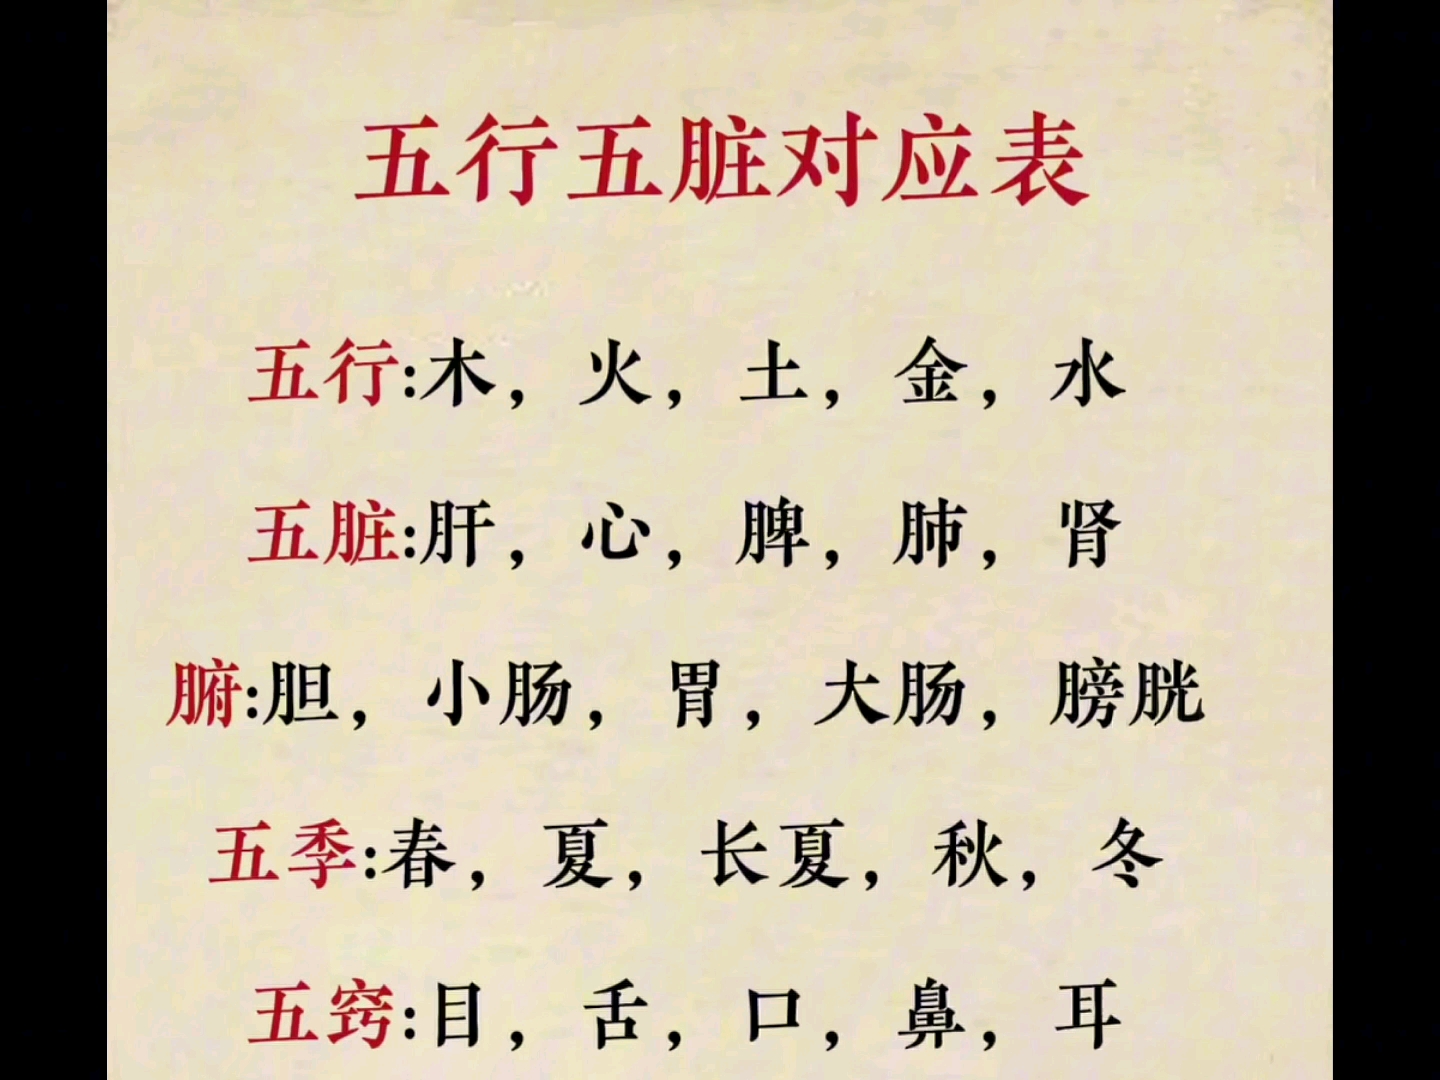 五行五脏对应表
五行:木，火，土，金，水
五脏:肝，心，脾，肺，肾
腑:胆，小肠，胃，大肠，膀胱
五季:春，夏，长夏，秋，冬
五窍:目，舌，口，鼻，耳